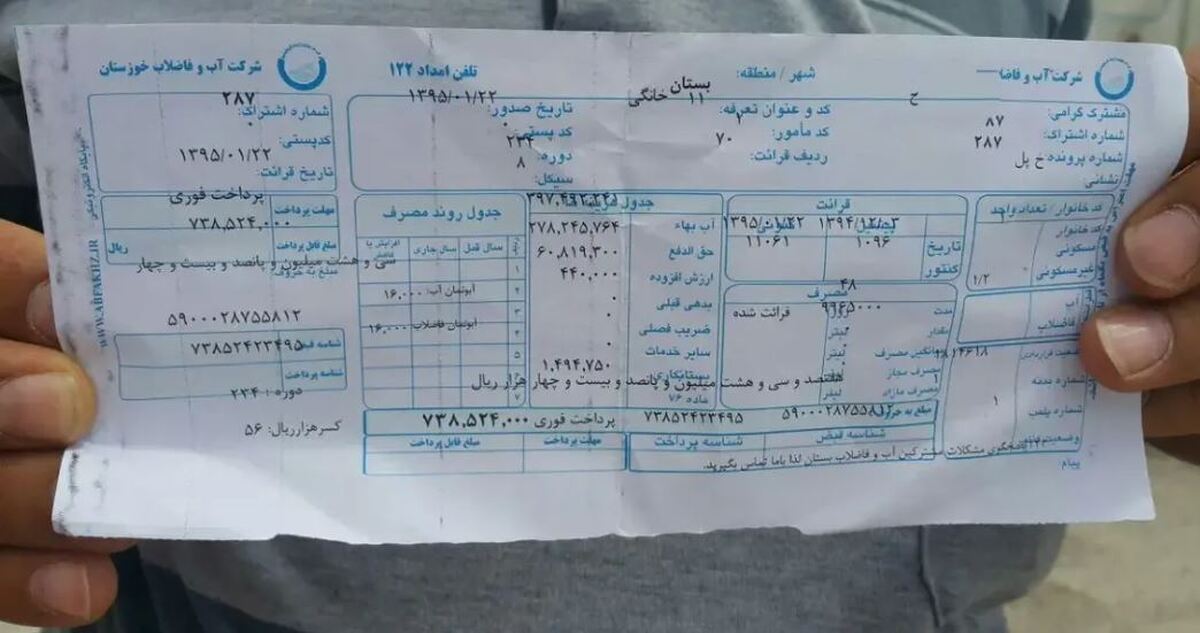 شرکت آب و فاضا
شهر / منطقه:
بستان
تلفن امداد ۱۲۲
مشترک گرامی:
ح
شماره اشتراک:
۸۷
شماره پرونده:
۲۸۷
نشانی:
خ پل
کد و عنوان تعرفه:
۱۱ خانگی
کد مأمور:
۲
ردیف قرائت:
۷۰
تاریخ صدور:
۱۳۹۵/۰۱/۲۲
کد پستی:
۰
دوره:
۲۳۴
سیکل:
۸
کد خانوار / تعداد واحد
کد خانوار
مسکونی
غیرمسکونی
۱/۲
آب
فاضلاب
شماره بدنه
شماره پلمپ
۱
پیام
قرائت
تاریخ
۱۳۹۵/۰۱/۲۲
کنتور
۱۰۹۶
۱۱۰۶۱
مصرف
مدت
۴۸
روز
مقدار
۹۹۶۵۰۰۰
لیتر
قرائت شده
میانگین مصرف
لیتر
مصرف مجاز
لیتر
مصرف مازاد
لیتر
مبلغ به حروف
هفتصد و سی و هشت میلیون و پانصد و بیست و چهار هزار ریال
آب بهاء
حق الدفع
۲۷۸,۲۴۵,۷۶۴
ارزش افزوده
۶۰,۸۱۹,۳۰۰
بدهی قبلی
۴۴۰,۰۰۰
ضریب فصلی
۰
سایر خدمات
۰
بستانکاری
۰
ماده ۷۶
۱,۴۹۴,۷۵۰
جدول روند مصرف
سال قبل
سال جاری
۱
۲
آبونمان آب: ۱۶,۰۰۰
۳
۴
آبونمان فاضلاب: ۱۶,۰۰۰
۵
۷
شناسه قبض
۵۹۰۰۰۲۸۷۵۵۸۱۲
شناسه پرداخت
۷۳۸۵۲۴۲۳۴۹۵
مهلت پرداخت
پرداخت فوری
مبلغ قابل پرداخت
۷۳۸,۵۲۴,۰۰۰
مشترکین آب و فاضلاب بستان لذا باما تماس بگیرید.
شرکت آب و فاضلاب خوزستان
شماره اشتراک:
۲۸۷
کدپستی:
۰
تاریخ قرائت:
۱۳۹۵/۰۱/۲۲
مهلت پرداخت
پرداخت فوری
مبلغ قابل پرداخت
۷۳۸,۵۲۴,۰۰۰
ریال
مبلغ به حروف:
سی و هشت میلیون و پانصد و بیست و چهار
۵۹۰۰۰۲۸۷۵۵۸۱۲
شناسه قبض
۷۳۸۵۲۴۲۳۴۹۵
شناسه پرداخت
دوره: ۲۳۴
کسرهزارریال: ۵۶
WWW.ABFAKHZ.IR
پایگاه الکترونیکی